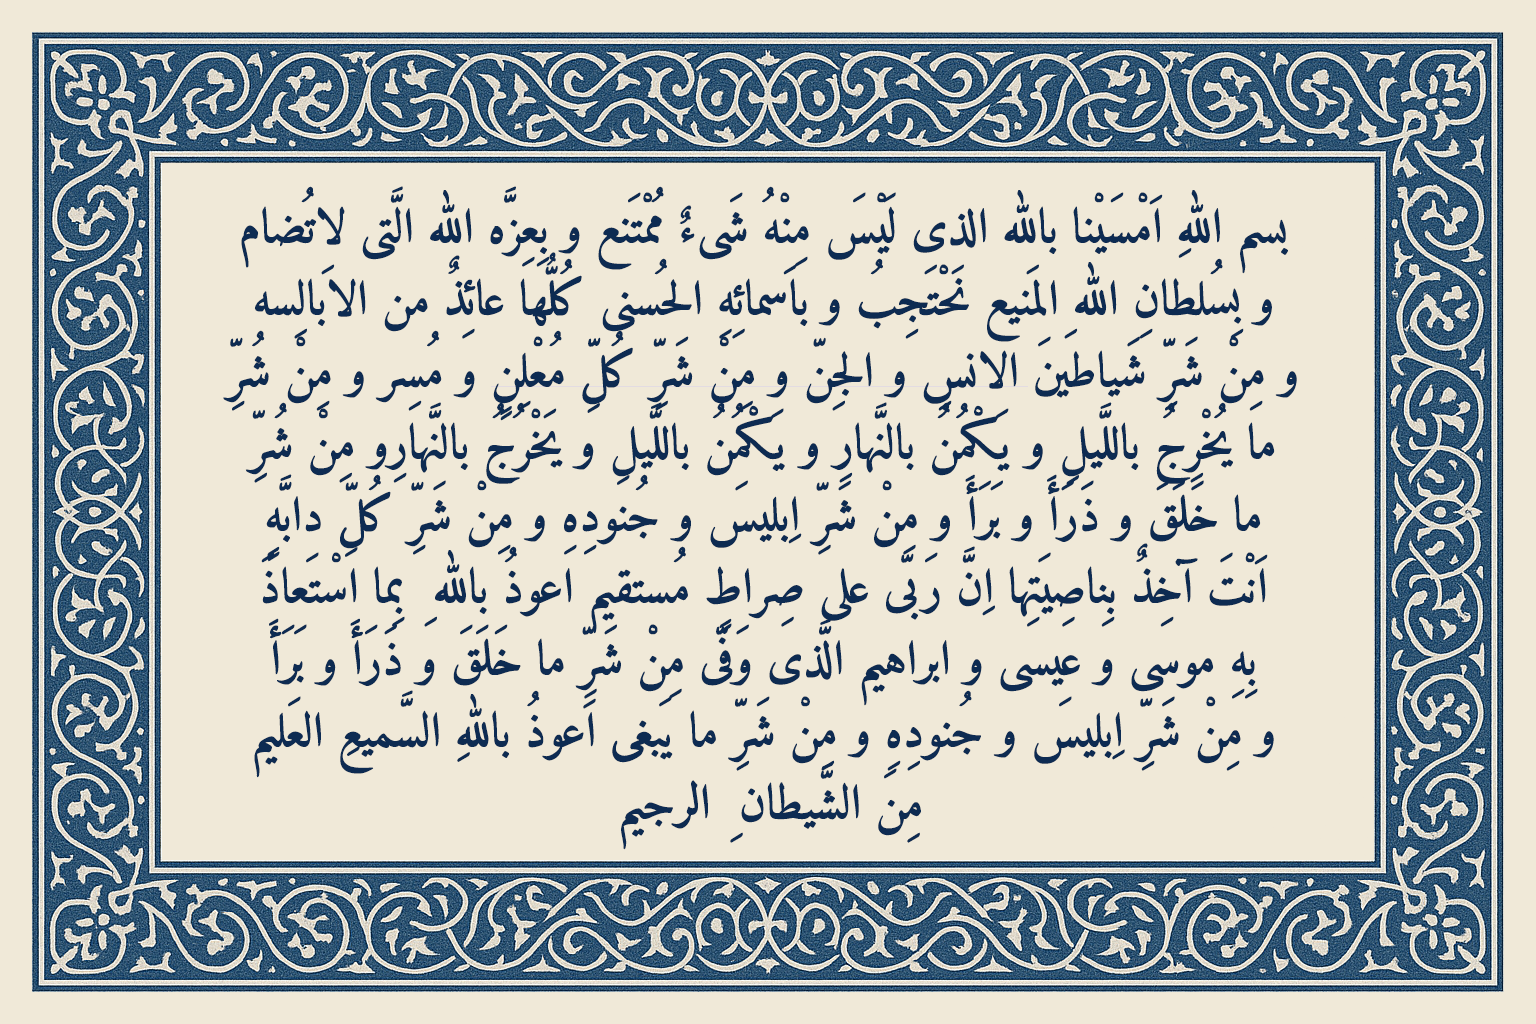 بسم اللهِ اَمْسَيْنا بالله الذى لَيْسَ مِنْهُ شَىءٌ مُمْتَنع و بِعِزَّه الله الَّتى لاتُضام
و بِسُلطانِ الله المَنيع نَحْتَجِبُ و باَسمائِهِ الحُسنى كُلُّهَا عائِذٌ من الاَبالِسه
و مِنْ شَرِّ شَياطينَ الانسِ و الجِنّ و مِنْ شَرِّ كُلِّ مُعْلِنِ و مُسِر و مِنْ شُرِّ
ما يُخْرِجُ باللَّيلِ و يَكْمُنُ بالنَّهارِ و يَكْمُنُ باللَّيلِ و يَخْرُجُ بالنَّهارِو مِنْ شُرِّ
ما خَلَقَ و ذَرَأَ و بَرَأَ و مِنْ شَرِّ اِبليسَ و جُنودِهِ و مِنْ شَرِّ كُلِّ دابَّهِ
اَنْتَ آخِذٌ بِناصِيَتِها اِنَّ رَبّى على صِراطٍ مُستقيم اعوذُ بِالله ِ بِما اسْتَعاذَ
بِهِ موسى و عيسى و ابراهيم الَّذى وَفّى مِنْ شَرِّ ما خَلَقَ و ذَرَأَ و بَرَأَ
و مِنْ شَرِّ اِبليسَ و جُنودِهِ و مِنْ شَرِّ ما يَبغى اَعوذُ باللهِ السَّميعِ العَليم
مِنَ الشَّيطان ِ الرجيم